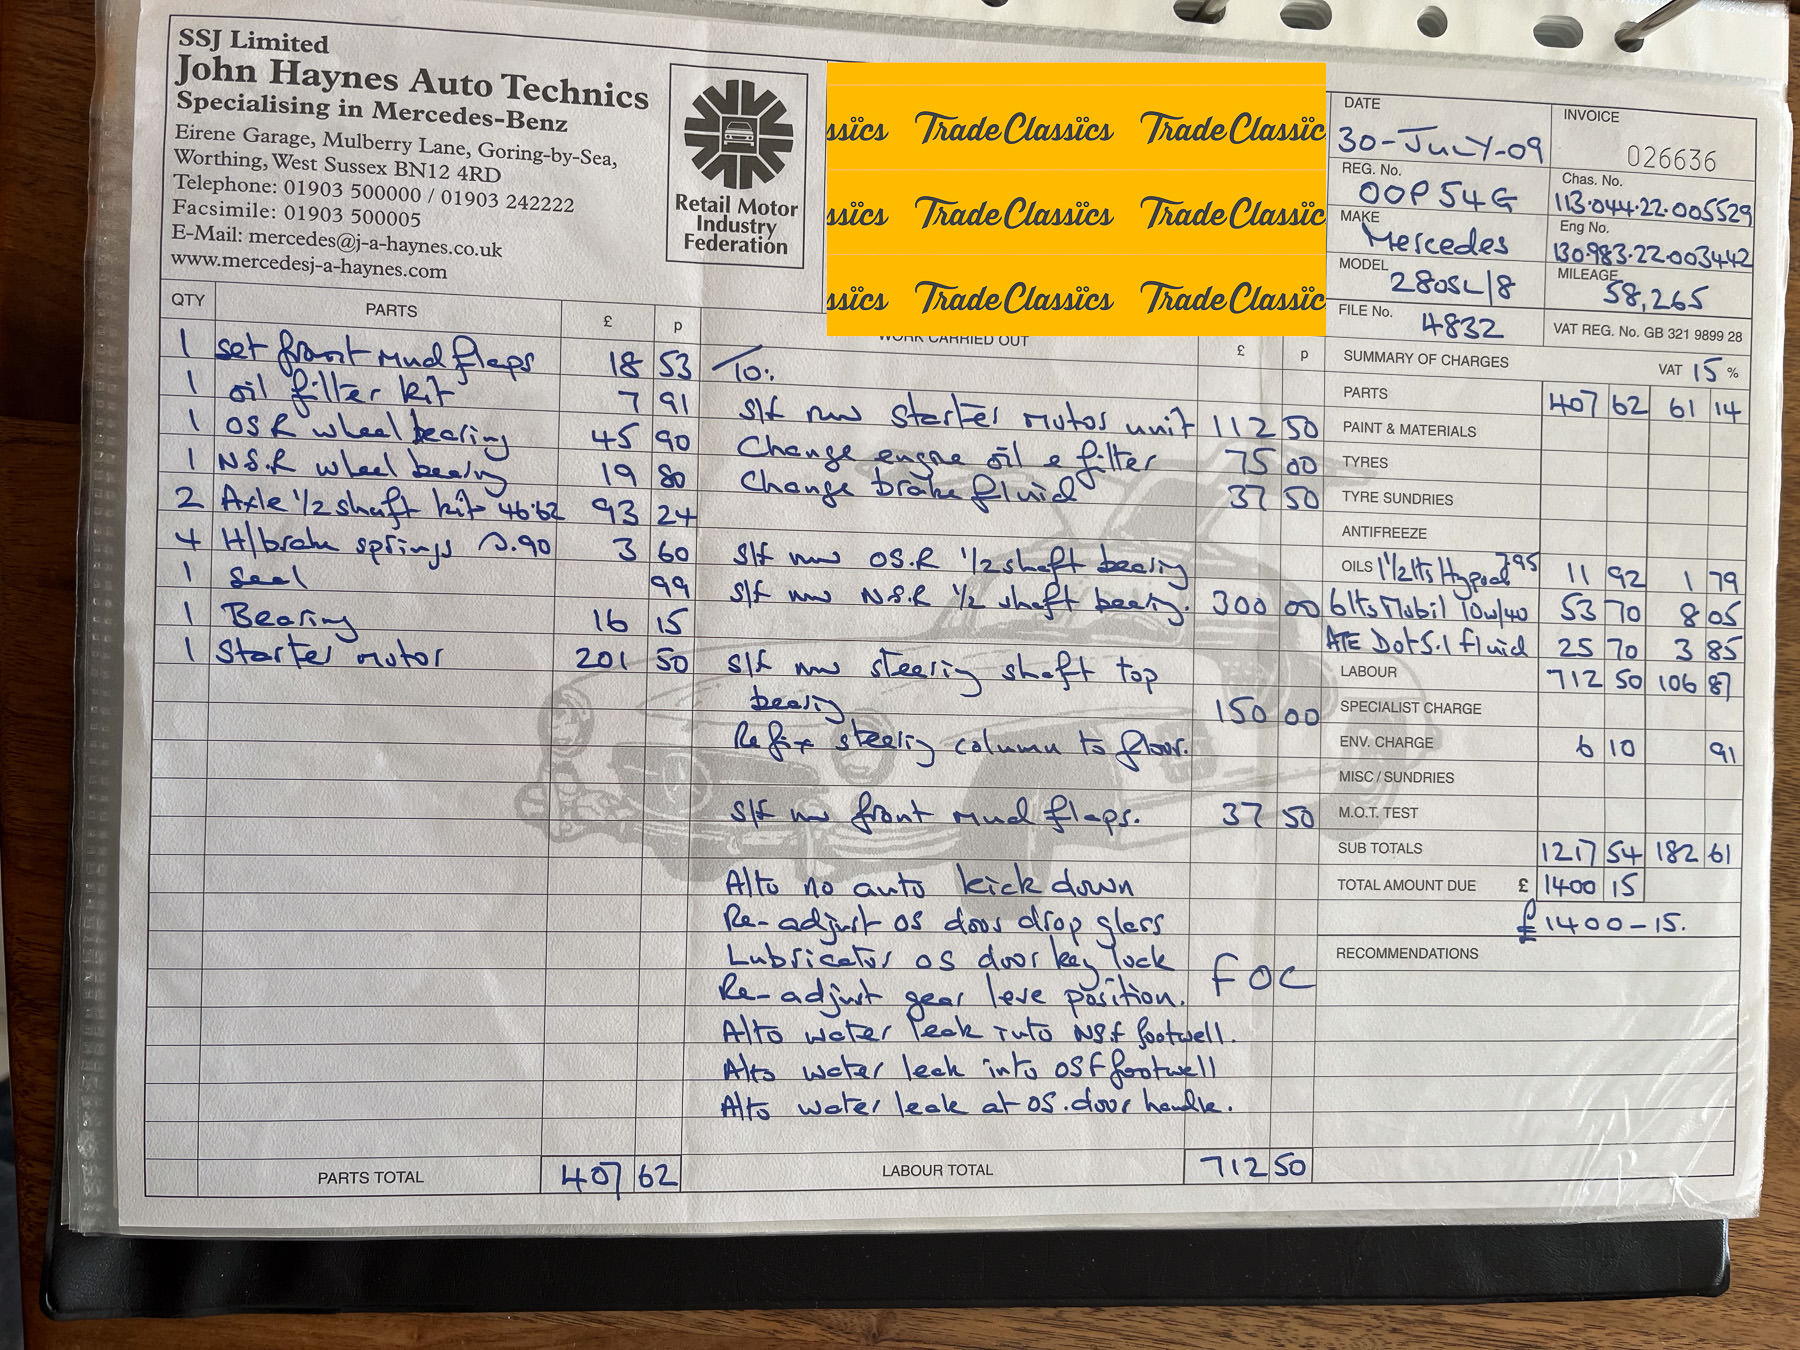 SSJ Limited
John Haynes Auto Technics
Specialising in Mercedes-Benz
Eirene Garage, Mulberry Lane, Goring-by-Sea,
Worthing, West Sussex BN12 4RD
Telephone: 01903 500000 / 01903 242222
Facsimile: 01903 500005
E-Mail: mercedes@j-a-haynes.co.uk
www.mercedesj-a-haynes.com
Retail Motor
Industry
Federation
ssïcs TradeClassïcs TradeClassïc
ssïcs TradeClassïcs TradeClassïc
ssïcs TradeClassïcs TradeClassïc
DATE
30-JULY-09
INVOICE
026636
REG. No.
OOP 54G
Chas. No.
113.044.22.005529
MAKE
Mercedes
Eng No.
130.983.22.003442
MODEL
280SL/8
MILEAGE
58,265
FILE No. 4832
VAT REG. No. GB 321 9899 28
QTY PARTS £ p
1 set front mud flaps 18 53
1 oil filter kit 7 91
1 OSR wheel bearing 45 90
1 N.S.R wheel bearing 19 80
2 Axle 1/2 shaft kit 46.62 93 24
4 H/brake springs 0.90 3 60
1 Seal 99
1 Bearing 16 15
1 Starter motor 201 50
PARTS TOTAL 407 62
WORK CARRIED OUT £ p
To:
S/f new starter motor unit 112 50
Change engine oil & filter 75 00
Change brake fluid 37 50
S/f new OS.R 1/2 shaft bearing
S/f new N.S.R 1/2 shaft bearing. 300 00
S/f new steering shaft top
bearing 150 00
Refix steering column to floor.
S/f new front mud flaps. 37 50
Alto no auto kick down
Re-adjust OS door drop glass
Lubricator OS door key lock
Re-adjust gear leve position. FOC
Alto water leak into NSF footwell.
Alto water leak into OSF footwell
Alto water leak at OS.door handle.
LABOUR TOTAL 712 50
SUMMARY OF CHARGES VAT 15 %
PARTS 407 62 61 14
PAINT & MATERIALS
TYRES
TYRE SUNDRIES
ANTIFREEZE
OILS 1 1/2 lts Hypoel 7.95 11 92 1 79
6 lts Mobil 10w/40 53 70 8 05
ATE Dot 5.1 fluid 25 70 3 85
LABOUR 712 50 106 87
SPECIALIST CHARGE
ENV. CHARGE 6 10 91
MISC / SUNDRIES
M.O.T. TEST
SUB TOTALS 1217 54 182 61
TOTAL AMOUNT DUE £ 1400 15
£1400-15.
RECOMMENDATIONS